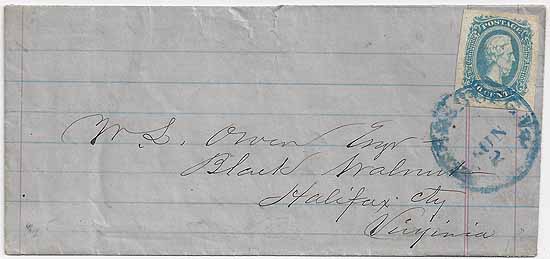 POSTAGE
CENTS
JUN
2
W. L. Owen Esqr
Black Walnut
Halifax Cty
Virginia